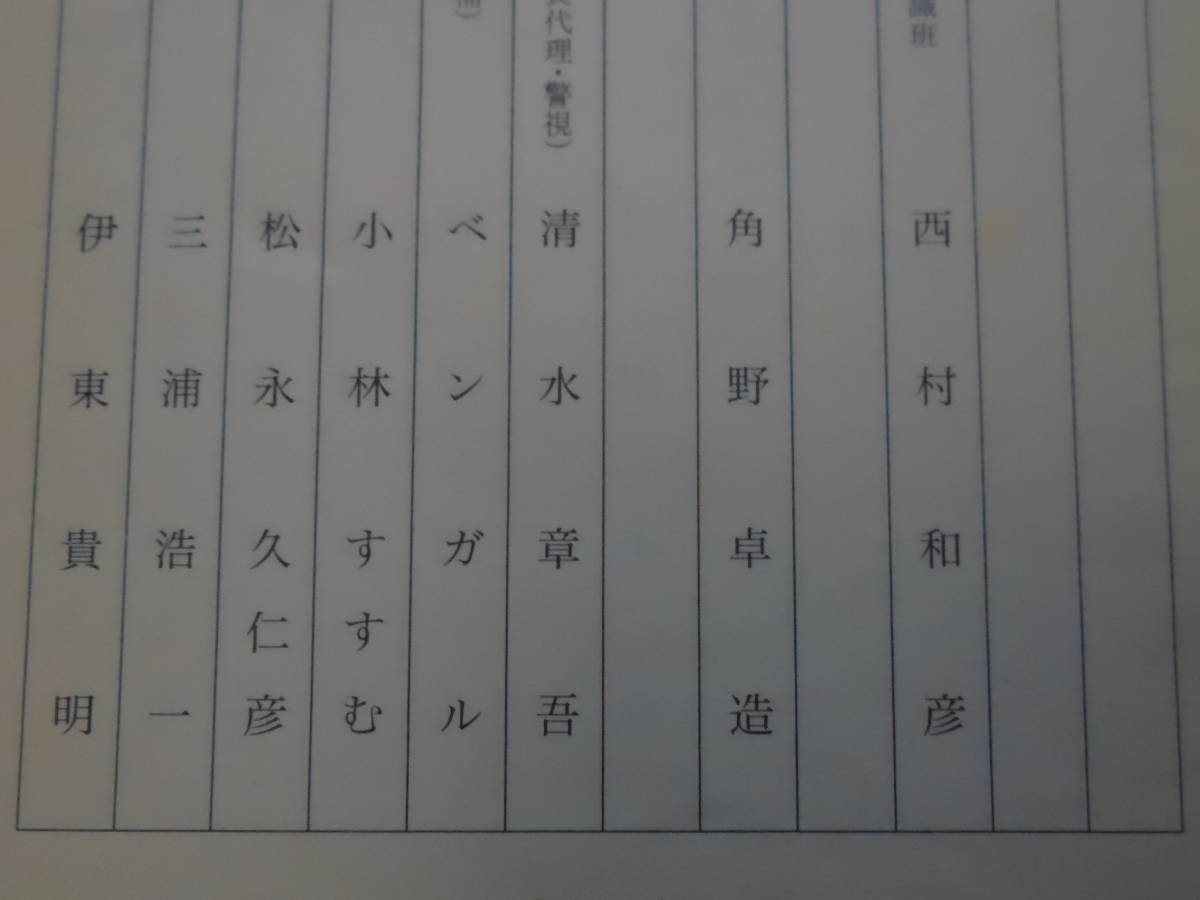 識班
西村和彦
角野卓造
長代理・警視)
清水章吾
補)
ベンガル
小林すすむ
松永久仁彦
三浦浩一
伊東貴明